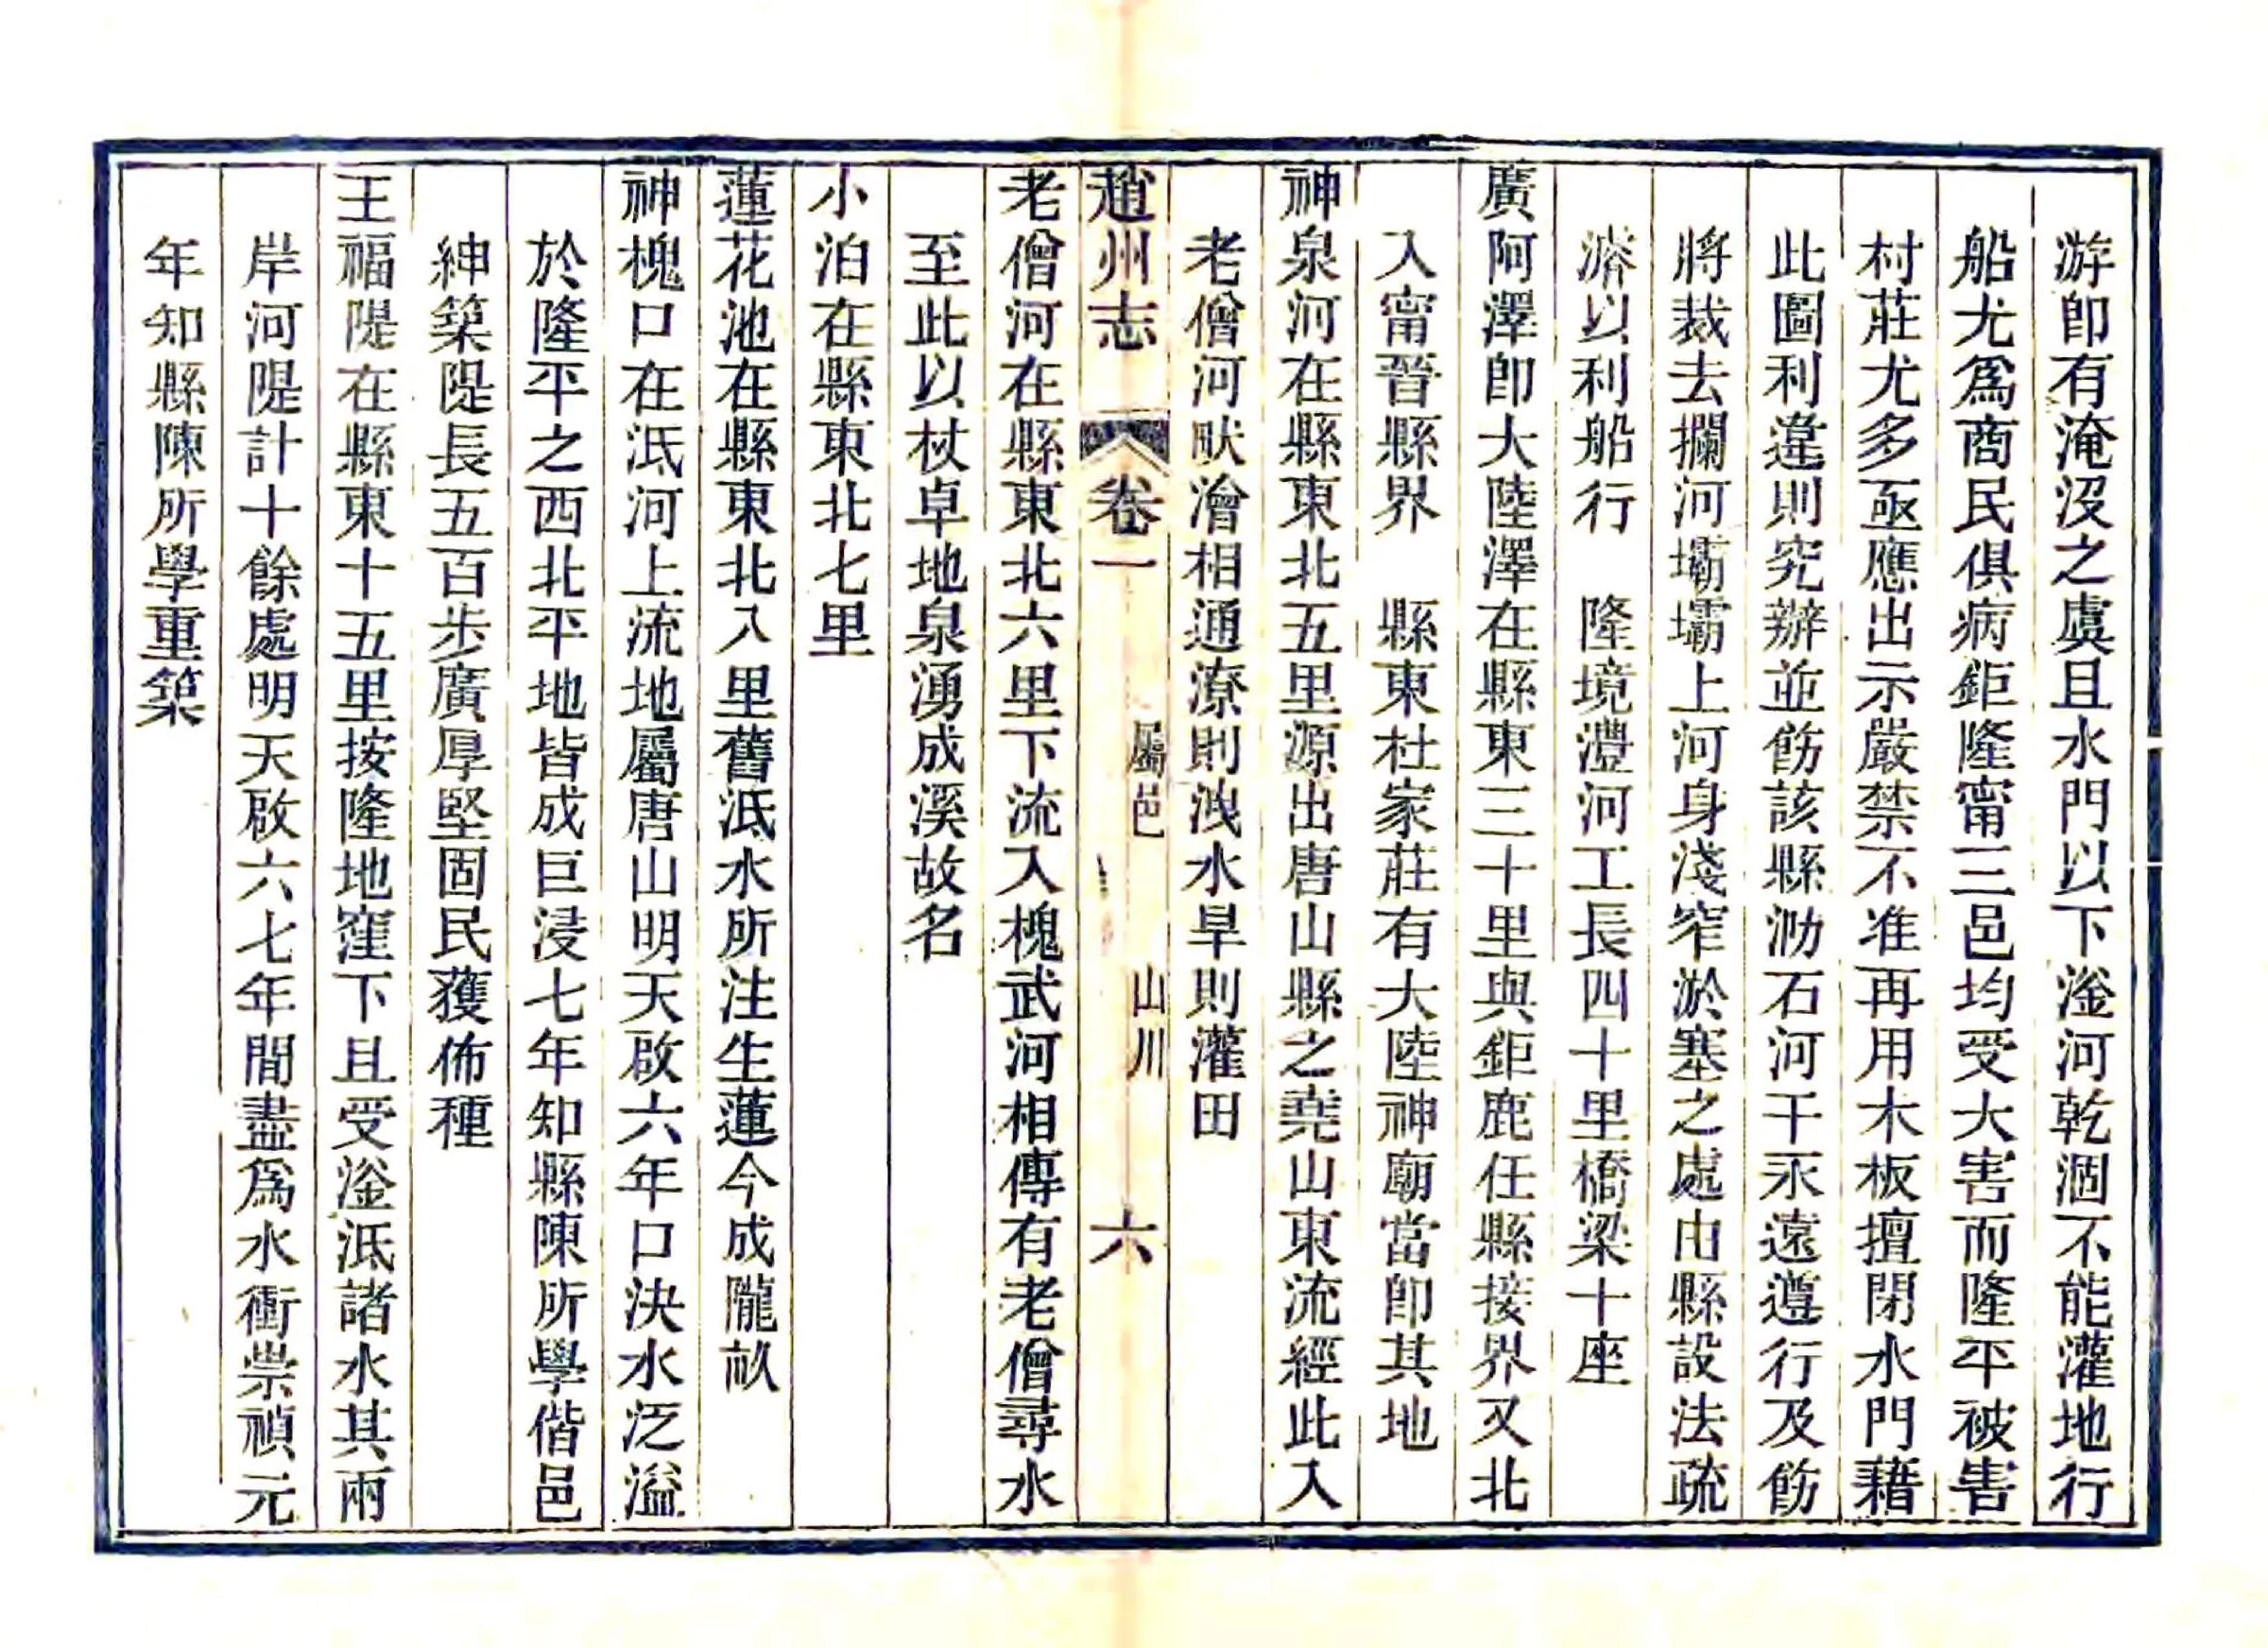 游卽有淹沒之虞且水門以下滏河乾涸不能灌地行
船尤爲商民俱病鉅隆甯三邑均受大害而隆平被害
村莊尤多亟應出示嚴禁不准再用木板擅閉水門藉
此圖利違則究辦並飭該縣泐石河干永遠遵行及飭
將裁去攔河壩壩上河身淺窄淤塞之處由縣設法疏
濬以利船行　隆境灃河工長四十里橋梁十座
廣阿澤卽大陸澤在縣東三十里與鉅鹿任縣接界又北
入甯晉縣界　縣東杜家莊有大陸神廟當卽其地
神泉河在縣東北五里源出唐山縣之堯山東流經此入
老僧河畎澮相通潦則洩水旱則灌田
趙州志　卷一　屬邑　山川　六
老僧河在縣東北六里下流入槐武河相傳有老僧尋水
至此以杖卓地泉湧成溪故名
小泊在縣東北七里
蓮花池在縣東北八里舊泜水所注生蓮今成隴畝
神槐口在泜河上流地屬唐山明天啟六年口決水泛溢
於隆平之西北平地皆成巨浸七年知縣陳所學偕邑
紳築隄長五百步廣厚堅固民獲佈種
王福隄在縣東十五里按隆地窪下且受滏泜諸水其兩
岸河隄計十餘處明天啟六七年間盡爲水衝崇禎元
年知縣陳所學重築